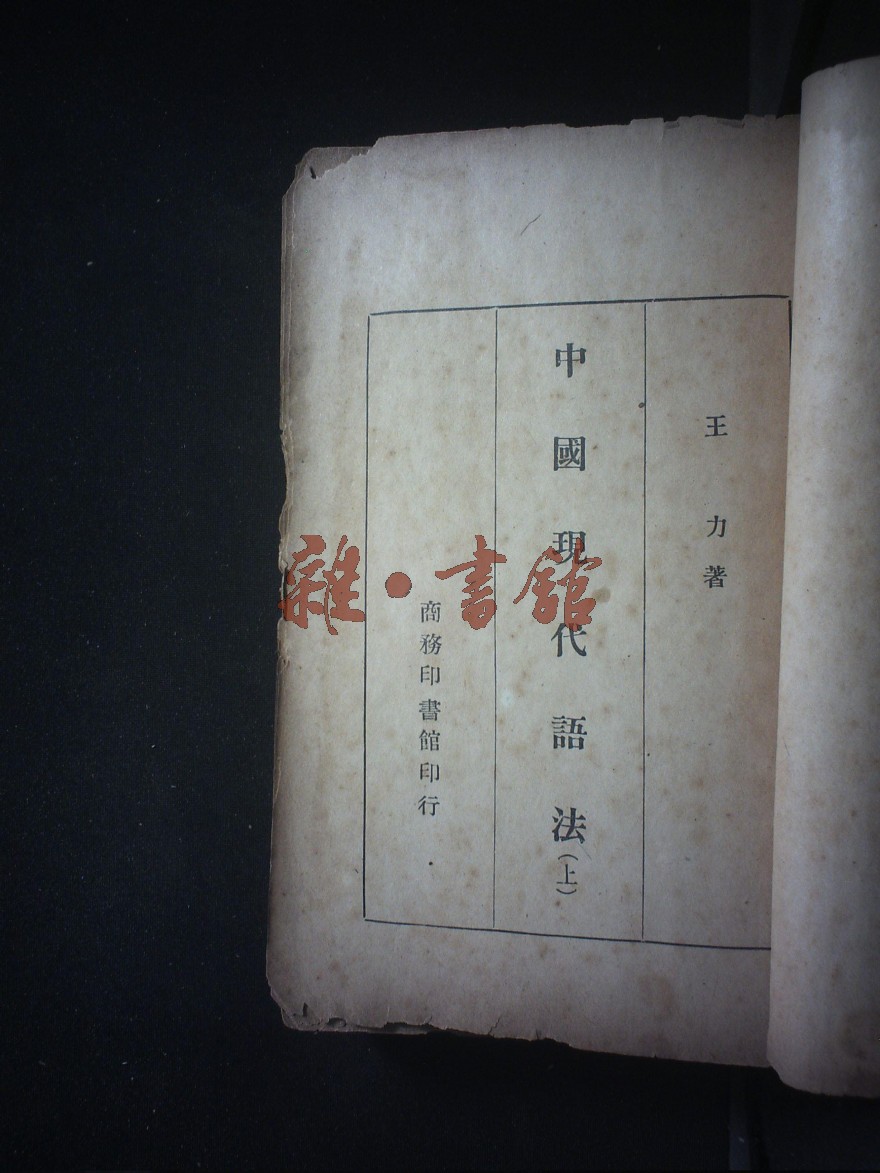 王力著
中國現代語法(上)
商務印書館印行
雜·書館